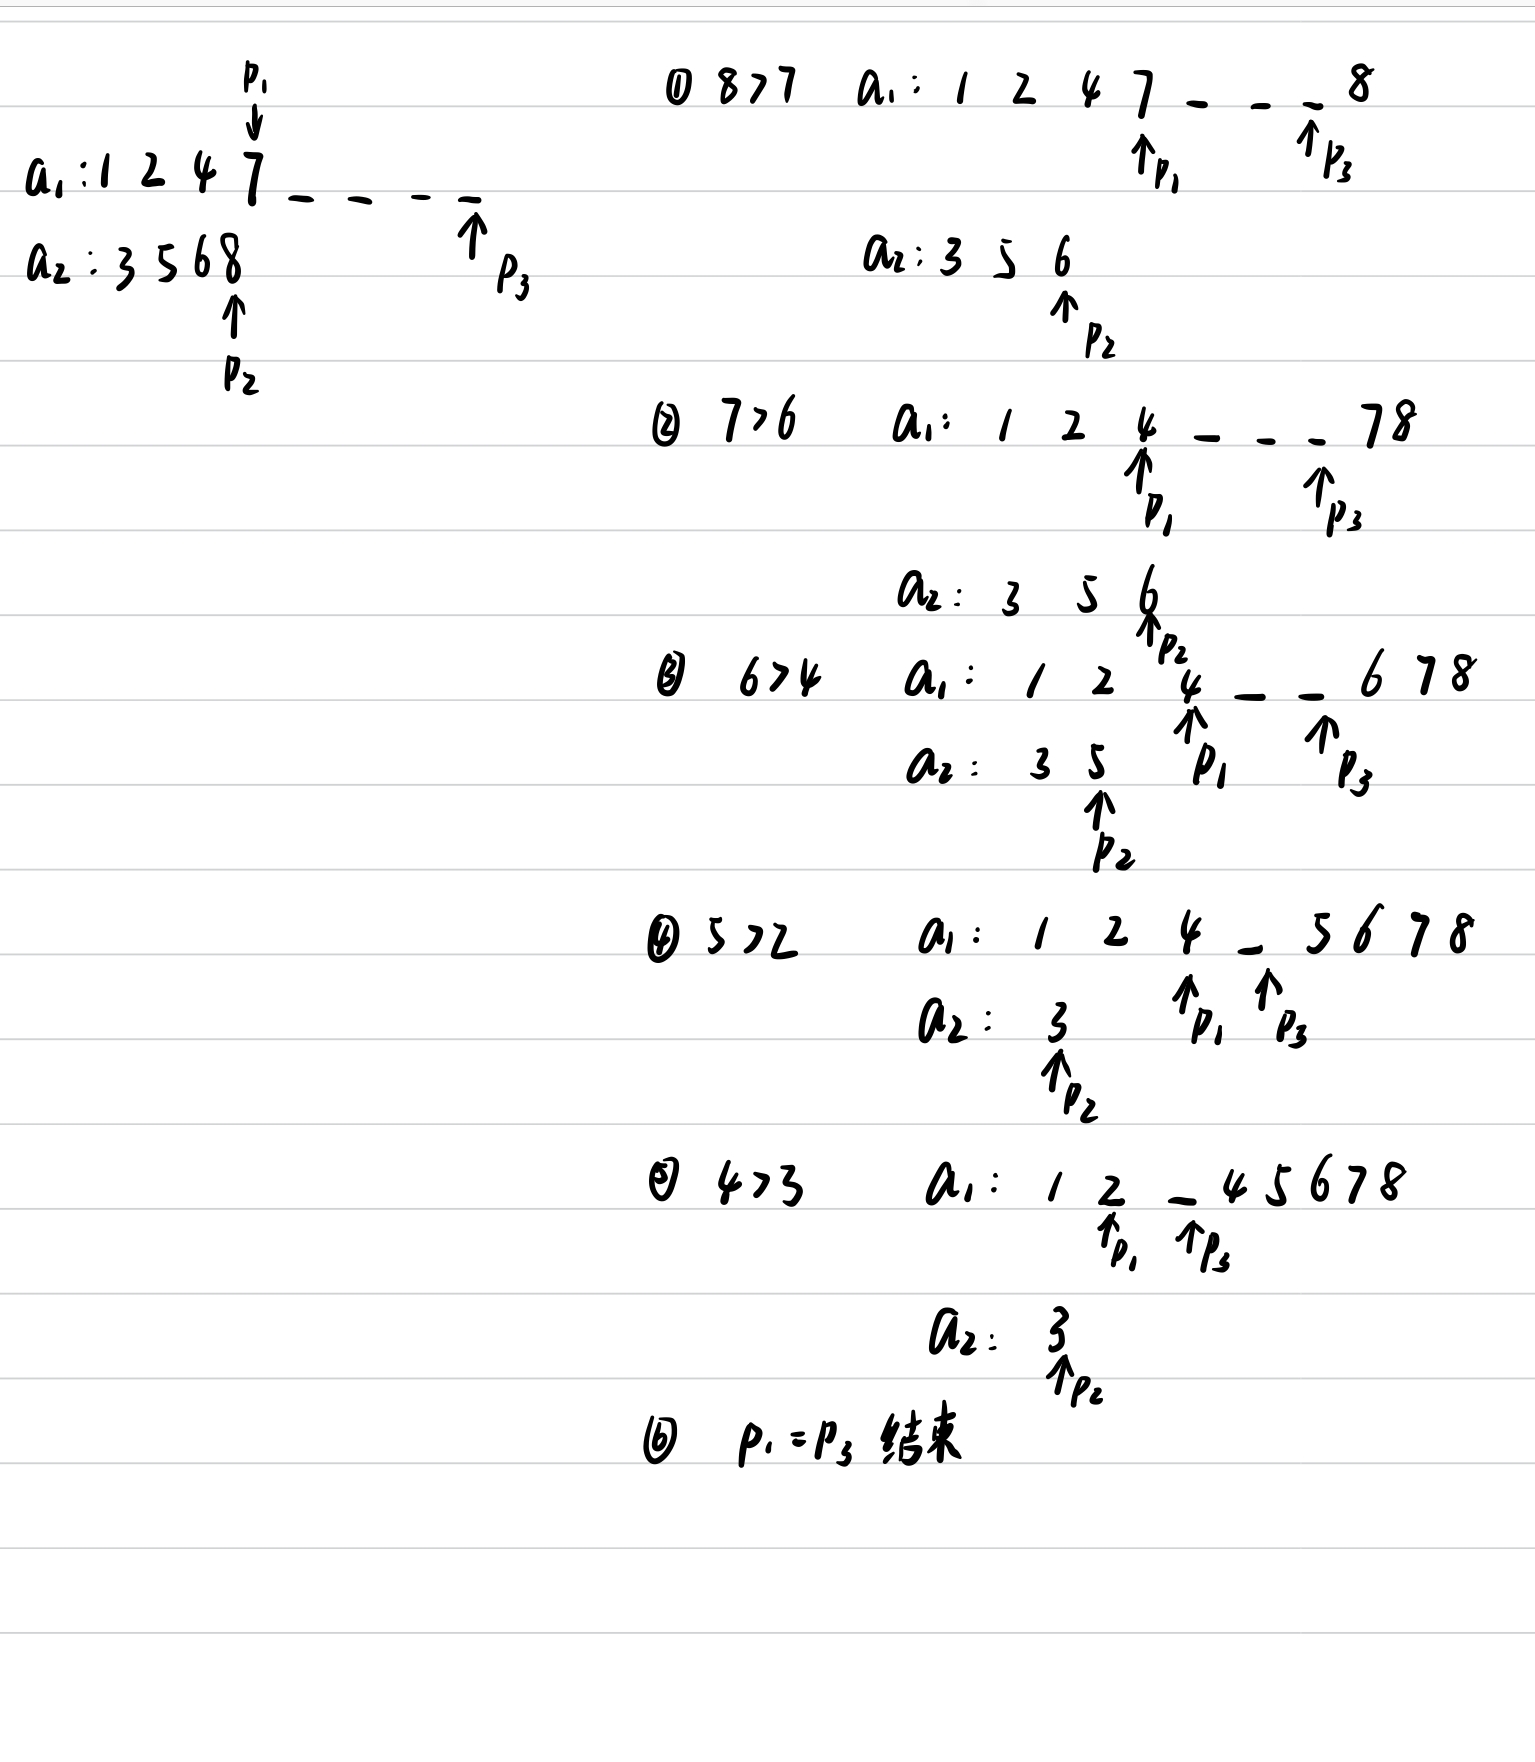 p₁
↓
a₁: 1 2 4 7 _ _ _ _
↑ p₃
a₂: 3 5 6 8
↑
p₂
① 8>7 a₁: 1 2 4 7 _ _ _ 8
↑p₁ ↑p₃
a₂: 3 5 6
↑ p₂
② 7>6 a₁: 1 2 4 _ _ _ 7 8
↑p₁ ↑p₃
a₂: 3 5 6
↑p₂
③ 6>4 a₁: 1 2 4 _ _ 6 7 8
↑p₁ ↑p₃
a₂: 3 5
↑
p₂
④ 5>2 a₁: 1 2 4 _ 5 6 7 8
↑p₁ ↑p₃
a₂: 3
↑p₂
⑤ 4>3 a₁: 1 2 _ 4 5 6 7 8
↑p₁ ↑p₃
a₂: 3
↑p₂
⑥ p₁=p₃ 结束